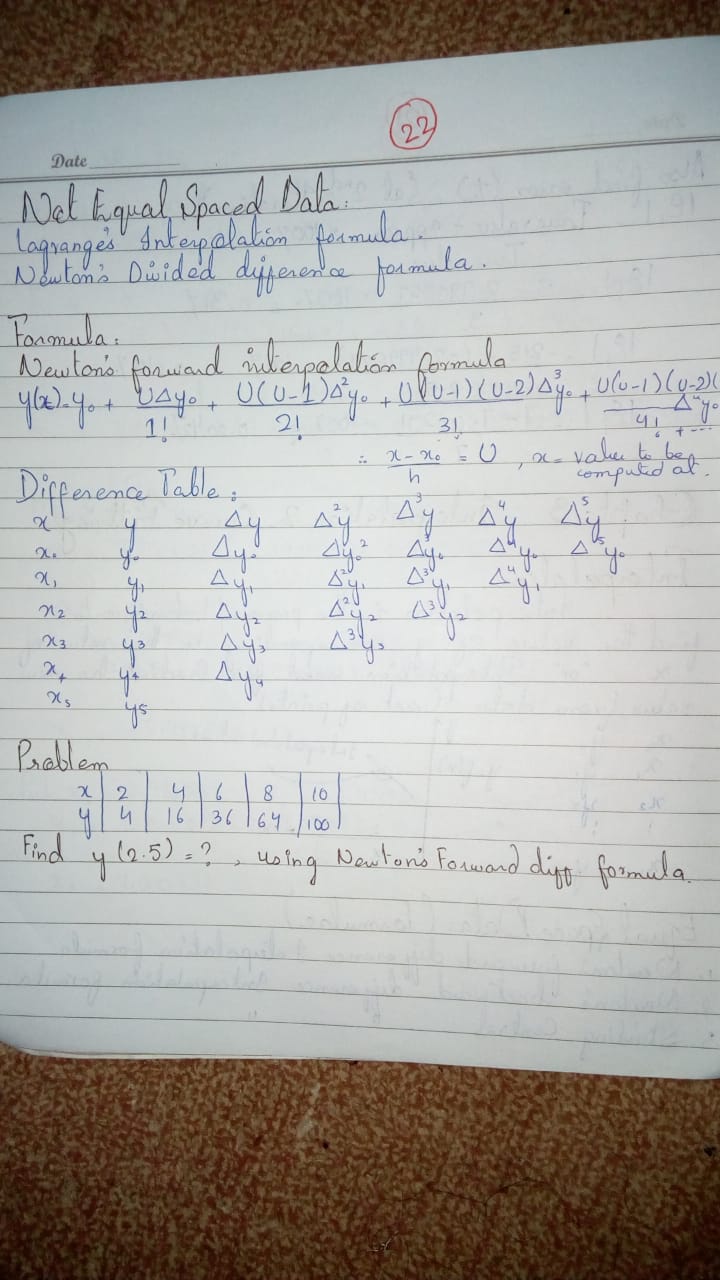 22
Date
Not Equal Spaced Data:
Lagrange's Interpolation formula.
Newton's Divided difference formula.
Formula:
Newton's forward interpolation formula
y(x)=y₀ + UΔy₀/1! + U(U-1)Δ²y₀/2! + U(U-1)(U-2)Δ³y₀/3! + U(U-1)(U-2)( Δ⁴y₀/4! + ---
∴ x-x₀/h = U , x = value to be computed at.
Difference Table:
x y Δy Δ²y Δ³y Δ⁴y Δ⁵y
x₀ y₀ Δy₀ Δy₀² Δ³y₀ Δ⁴y₀ Δ⁵y₀
x₁ y₁ Δy₁ Δ²y₁ Δ³y₁ Δ⁴y₁
x₂ y₂ Δy₂ Δ²y₂ Δ³y₂
x₃ y₃ Δy₃ Δ³y₃
x₄ y₄ Δy₄
x₅ y₅
Problem
x | 2 | 4 | 6 | 8 | 10 |
y | 4 | 16 | 36 | 64 | 100
Find y(2.5) = ? , using Newton's Forward diff formula.